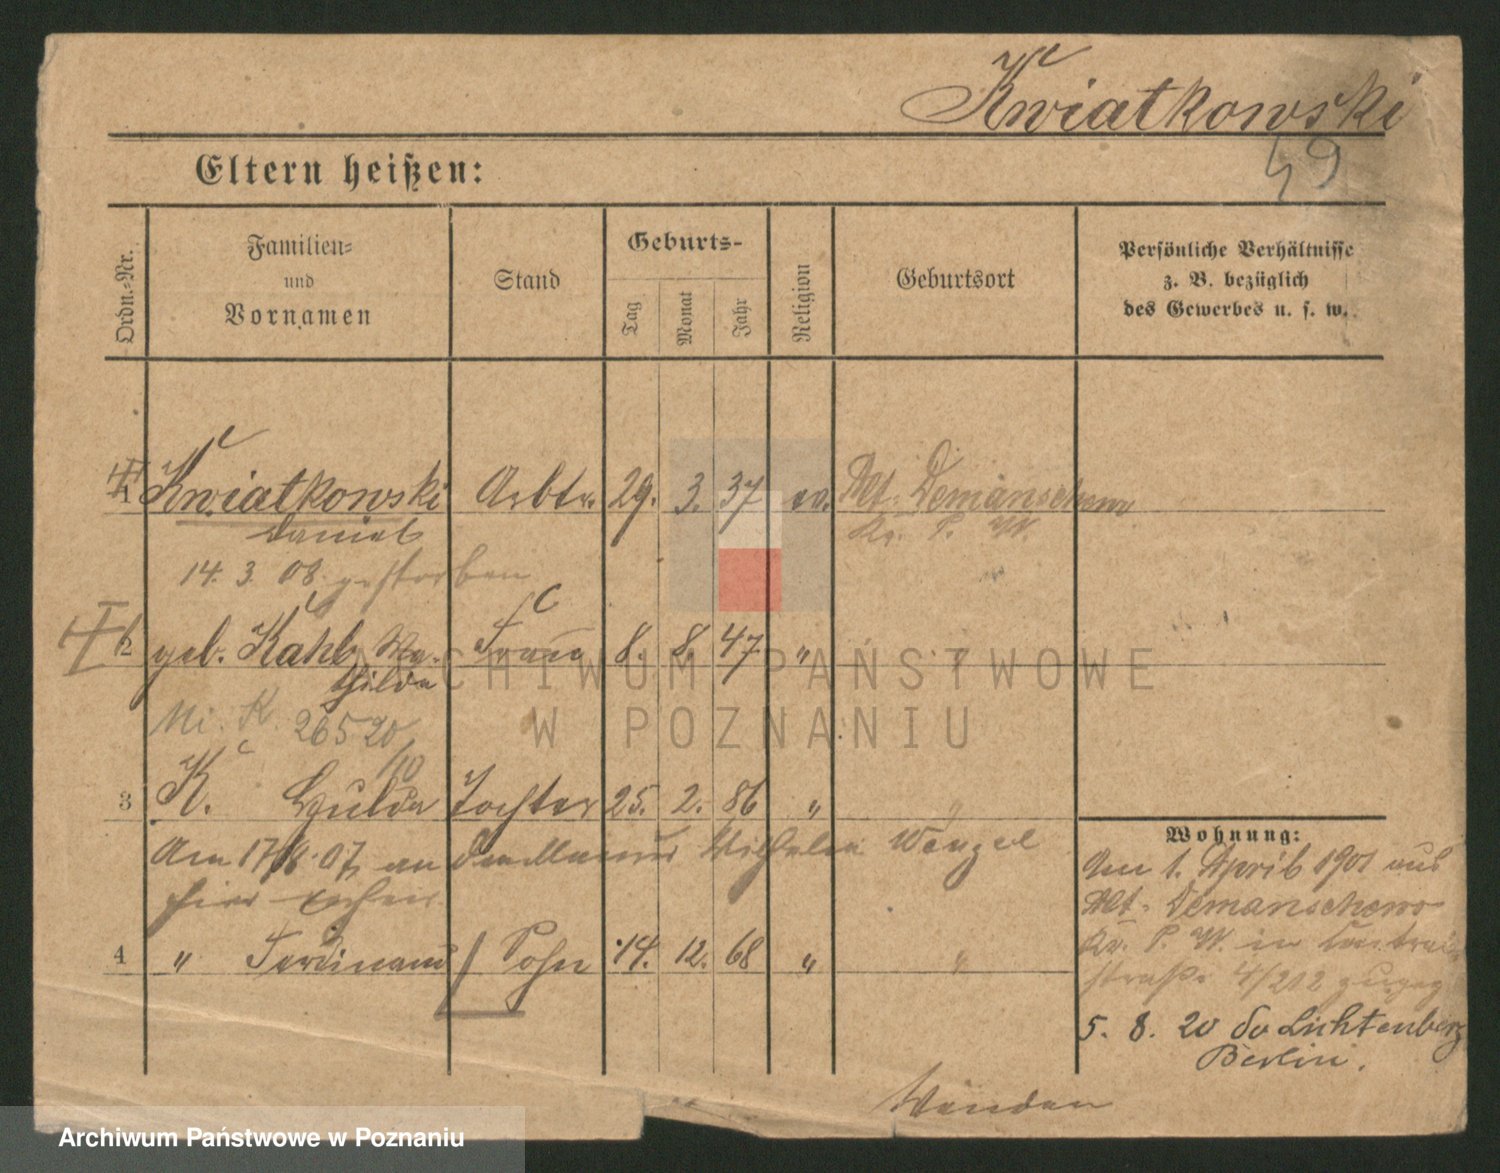 Kwiatkowski
49
Eltern heißen:
Ordn.-Nr.
Familien-
und
Vornamen
Stand
Geburts-
Tag
Monat
Jahr
Religion
Geburtsort
Persönliche Verhältnisse
z. B. bezüglich
des Gewerbes u. s. w.
1 Kwiatkowski Arbtr. 29. 3. 37 ev. Alt. Demanschewo
Daniel Kr. P. W.
14. 3. 08. gestorben
2 geb. Kahl, Frau 8. 8. 47 "
thilda
26520
/10
3 K. Hulda Tochter 25. 2. 86 " "
Am 07 an Wilhelm Wenzel
hier
4 " Ferdinand Sohn 14. 12. 68 " "
Wohnung:
Am 1. April 1901 aus
Alt. Demanschewo
Kr. P. W. in
straße 4/212 zugez
5. 8. 20 do Lichtenberg
Berlin.
Wenden
ARCHIWUM PAŃSTWOWE
W POZNANIU
Archiwum Państwowe w Poznaniu